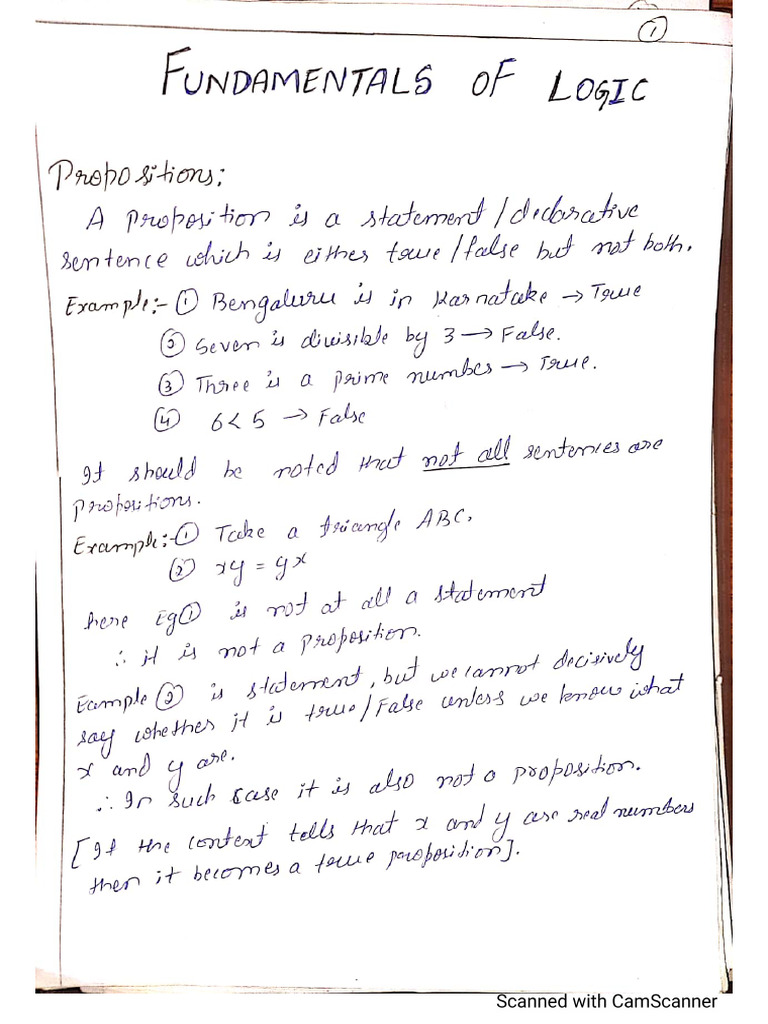 1
FUNDAMENTALS OF LOGIC
Propositions:
A proposition is a statement/declarative
sentence which is either true/false but not both.
Example:- ① Bengaluru is in Karnatake → True
② Seven is divisible by 3 → False.
③ Three is a prime number → True.
④ 6 < 5 → False
It should be noted that not all sentences are
propositions.
Example:- ① Take a triangle ABC.
② xy = yx
here Eg ① is not at all a statement
∴ it is not a proposition.
Example ② is statement, but we cannot decisively
say whether it is true/False unless we know what
x and y are.
∴ In such case it is also not a proposition.
[If the context tells that x and y are real numbers
then it becomes a true proposition].
Scanned with CamScanner